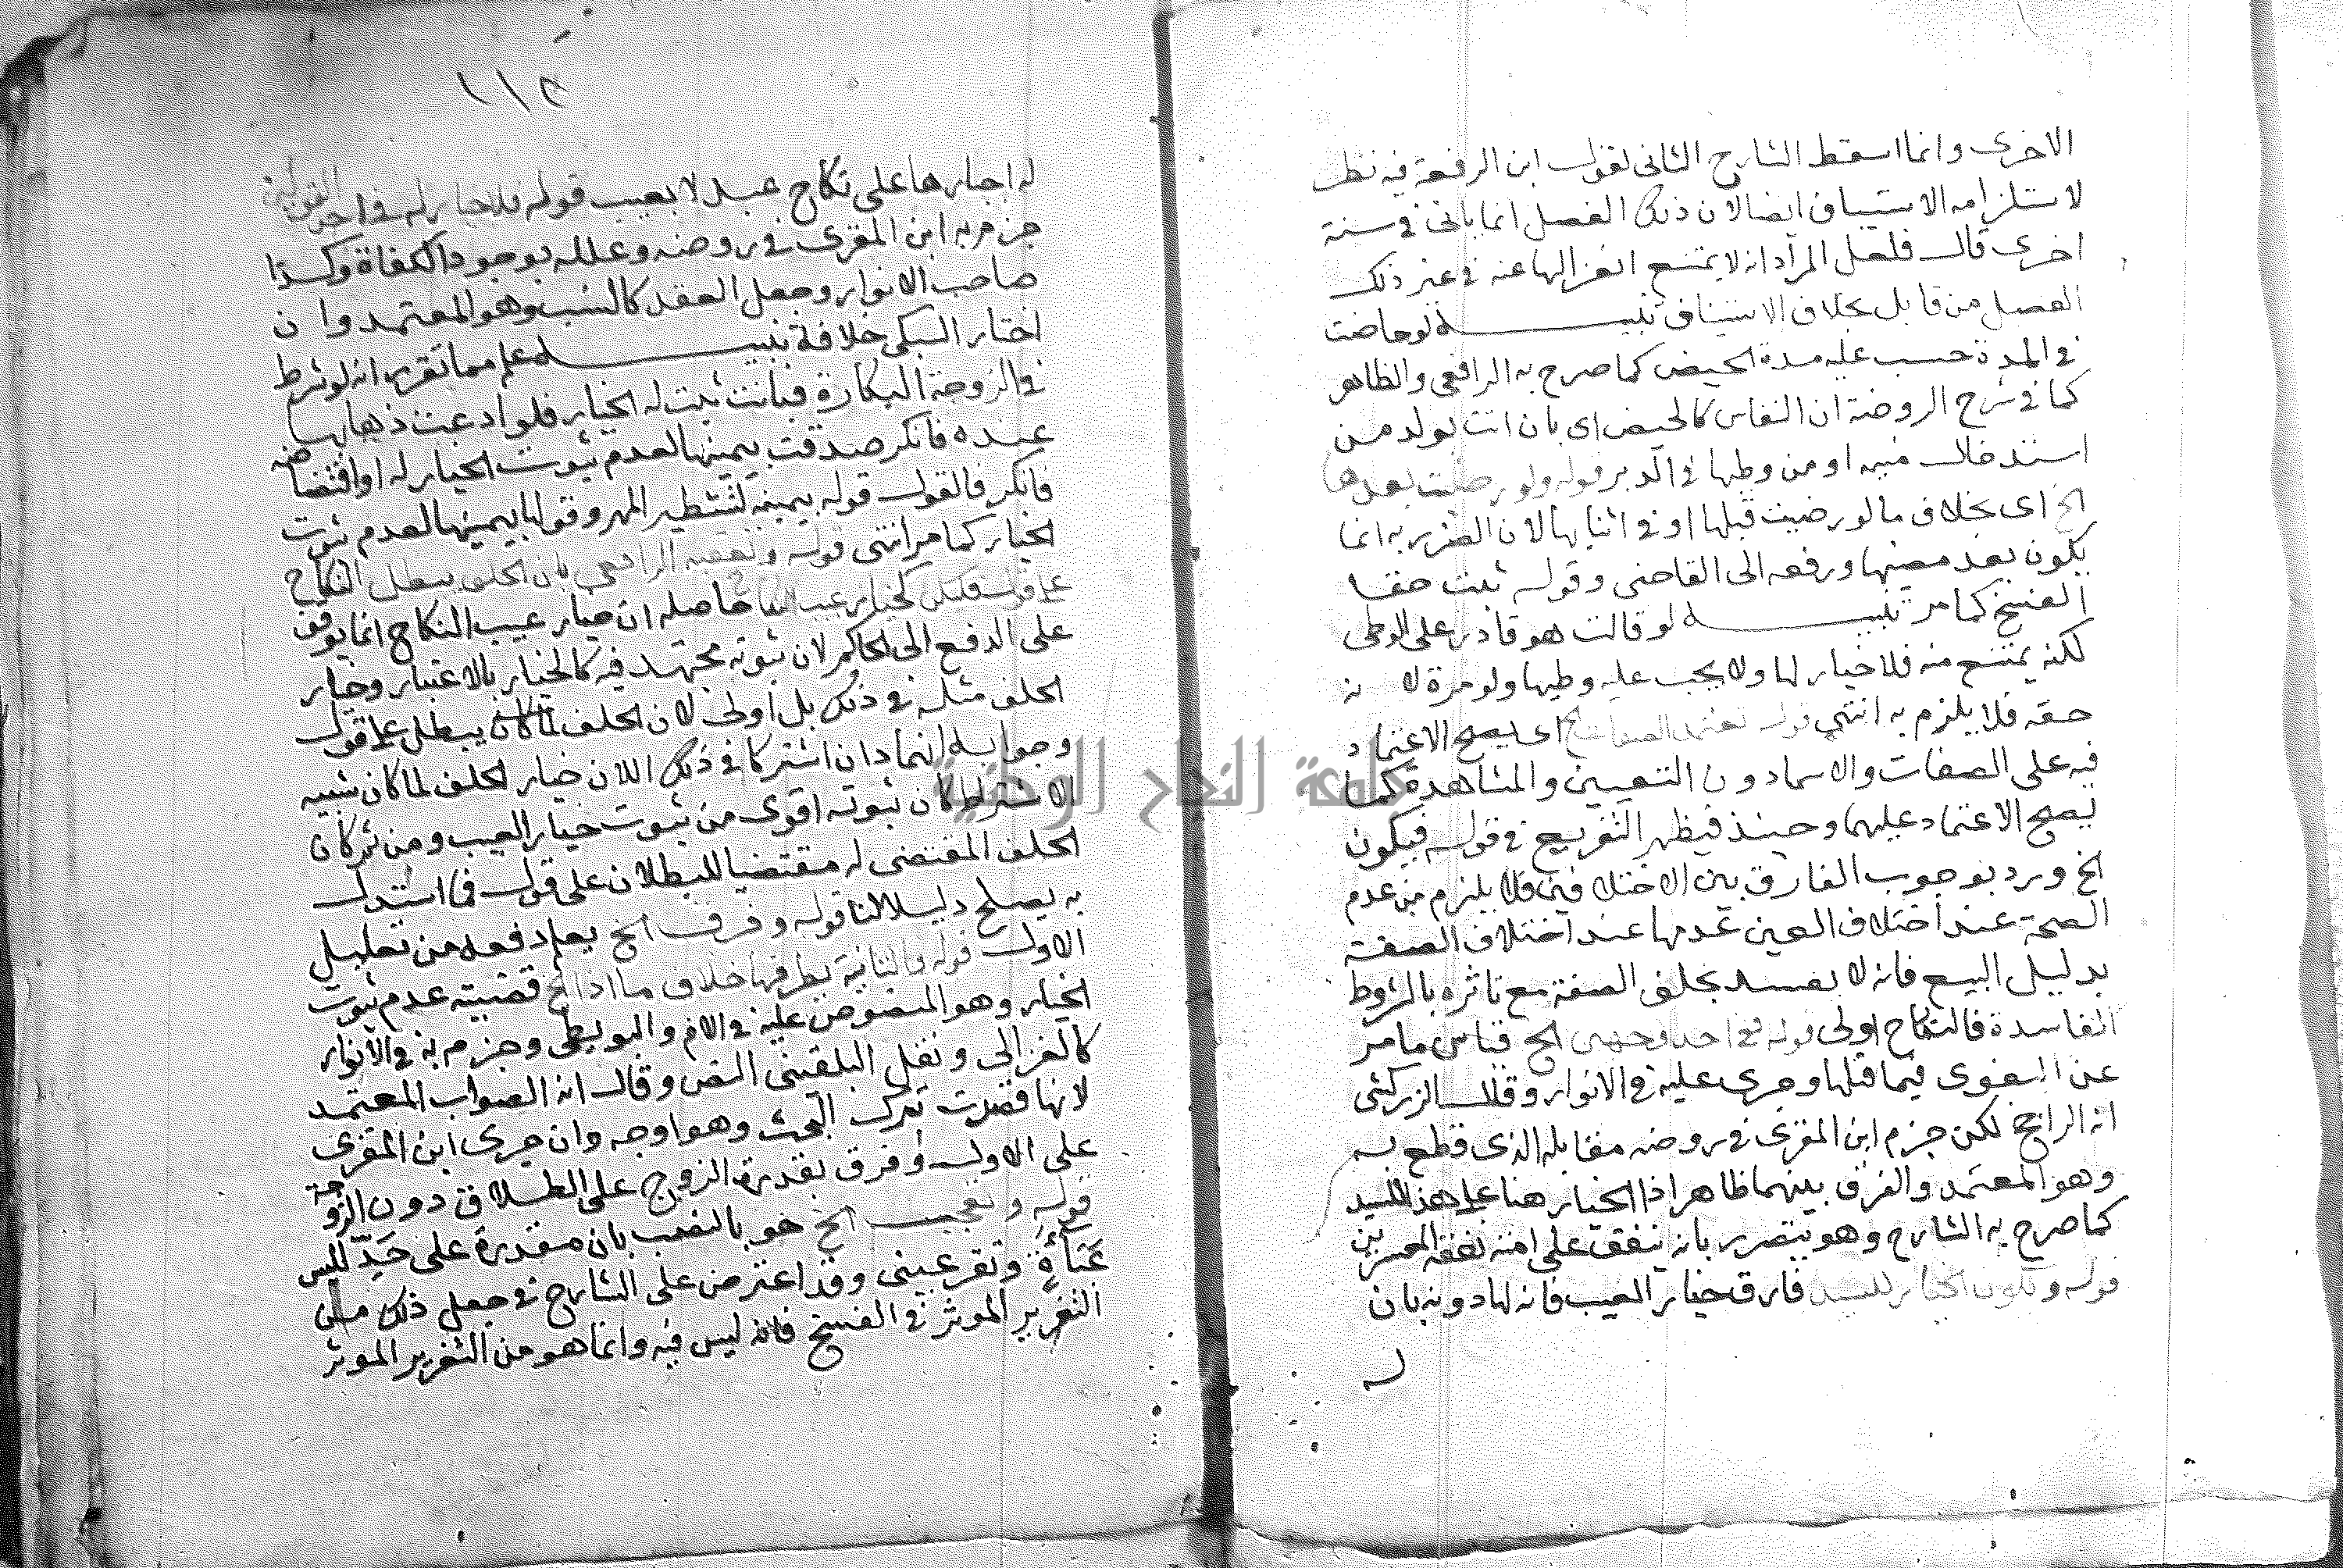 الاخرى وانما اسقط الشارح الثانى لقول ابن الرفعة فيه نظر
لاستلزامه الاستيناف ايضا لان ذلك الفصل انما ياتى فى سنة
اخرى قال فلعل المراد انه لا يمتنع انعزالها عنه فى غير ذلك
الفصل من قابل بخلاف الاستيناف تنبيه لو حاضت
فى المدة حسب عليه مدة الحيض كما صرح به الرافعى والظاهر
كما فى شرح الروضة ان النفاس كالحيض اى بان اتت بولد من
استدخال منيه او من وطيها فى الدبر قوله ولو رضيت بعدها
الخ اى بخلاف ما لو رضيت قبلها او فى اثنايها لان الضرر به انما
يكون بعد مضيها ورفعه الى القاضى وقوله ثبت حقا
الفسخ كما مر تنبيه لو قالت هو قادر على الوطى
لكنه يمتنع منه فلا خيار لها ولا يجب عليه وطيها ولو مرة لانه
حقه فلا يلزم به انتهى قوله تعتمد الصفات الخ اى يصح الاعتماد
فيه على الصفات والاسما دون التعيين والمشاهدة كما
يصح الاعتماد عليهما وحينذ فيظهر التفريع فى قوله فيكون
الخ ورد بوجوب الفارق بين الاختلافين فلا يلزم من عدم
الصحة عند اختلاف العين عدمها عند اختلاف الصفة
بدليل البيع فانه لا يفسد بخلف الصفة مع تاثره بالشروط
الفاسدة فالنكاح اولى قوله فى احد وجهين الخ قياس ما مر
عن البغوى فيما قبلها وجرى عليه فى الانوار وقال الزركشى
انه الراجح لكن جزم ابن المقرى فى روضه مقابله الذى قطع به
وهو المعتمد والفرق بينهما ظاهر اذ الخيار هنا على هذا للسيد
كما صرح به الشارح وهو يتضرر بانه ينفق على امته نفقة المعسرين
قوله ويكون الخيار للسيد فارق خيار العيب فانه لها دونه بان
له
١١٢
له اجبارها على نكاح عبد لا بعيب قوله فلا خيار له فى احد القولين
جزم به ابن المقرى فى روضه وعلله بوجود الكفاة وكذا
صاحب الانوار وجعل العقد كالنسب وهو المعتمد وان
اختار السبكى خلافه تنبيه علم مما تقرر انه لو شرط
فى الزوجة البكارة فبانت ثيبا ثبت له الخيار فلو ادعت ذهابها
عنده فانكر صدقت بيمينها لعدم ثبوت الخيار له او افتضاضه
فانكر فالقول قوله بيمينه لتشطير المهر وقولها بيمينها لعدم ثبوت
الخيار كما مر انتهى قوله الرافعى بان الخلف يبطل النكاح
على قول فليكن كخيار عيب النكاح حاصله ان خيار عيب النكاح انما يوقف
على الدفع الى الحاكم لان ثبوته مجتهد فيه كالخيار بالاعتبار وخيار
الخلف مثله فى ذلك بل اولى لان الخلف لما كان يبطل على قول
وجوابه انهما وان اشتركا فى ذلك الا ان خيار الخلف لما كان شبيه
الاشتراط كان ثبوته اقوى من ثبوت خيار العيب ومن ثم كان
الخلف المقتضى له مقتضيا للبطلان على قول فما استدل
به يصلح دليلا لنا قوله وفرق الخ يعلم دفعه من تعليل
الاول قوله والثانية بطرفها خلاف ما اذا الخ قضيته عدم ثبوت
الخيار وهو المنصوص عليه فى الام والبويطى وجزم به فى الانوار
كالغزالى ونقل البلقينى النص وقال انه الصواب المعتمد
لانها قصرت بترك البحث وهو اوجه وان جرى ابن المقرى
على الاول وفرق بقدرة الزوج على الطلاق دون الزوجة
قوله وتعجيب الخ هو بالنصب بان مقدرة على حد للبس
عباءة وتقر عينى وقد اعترض على الشارح فى جعل ذلك من
التغرير الموثر فى الفسخ فانه ليس فيه وانما هو من التغرير الموثر
جامعة النجاح الوطنية